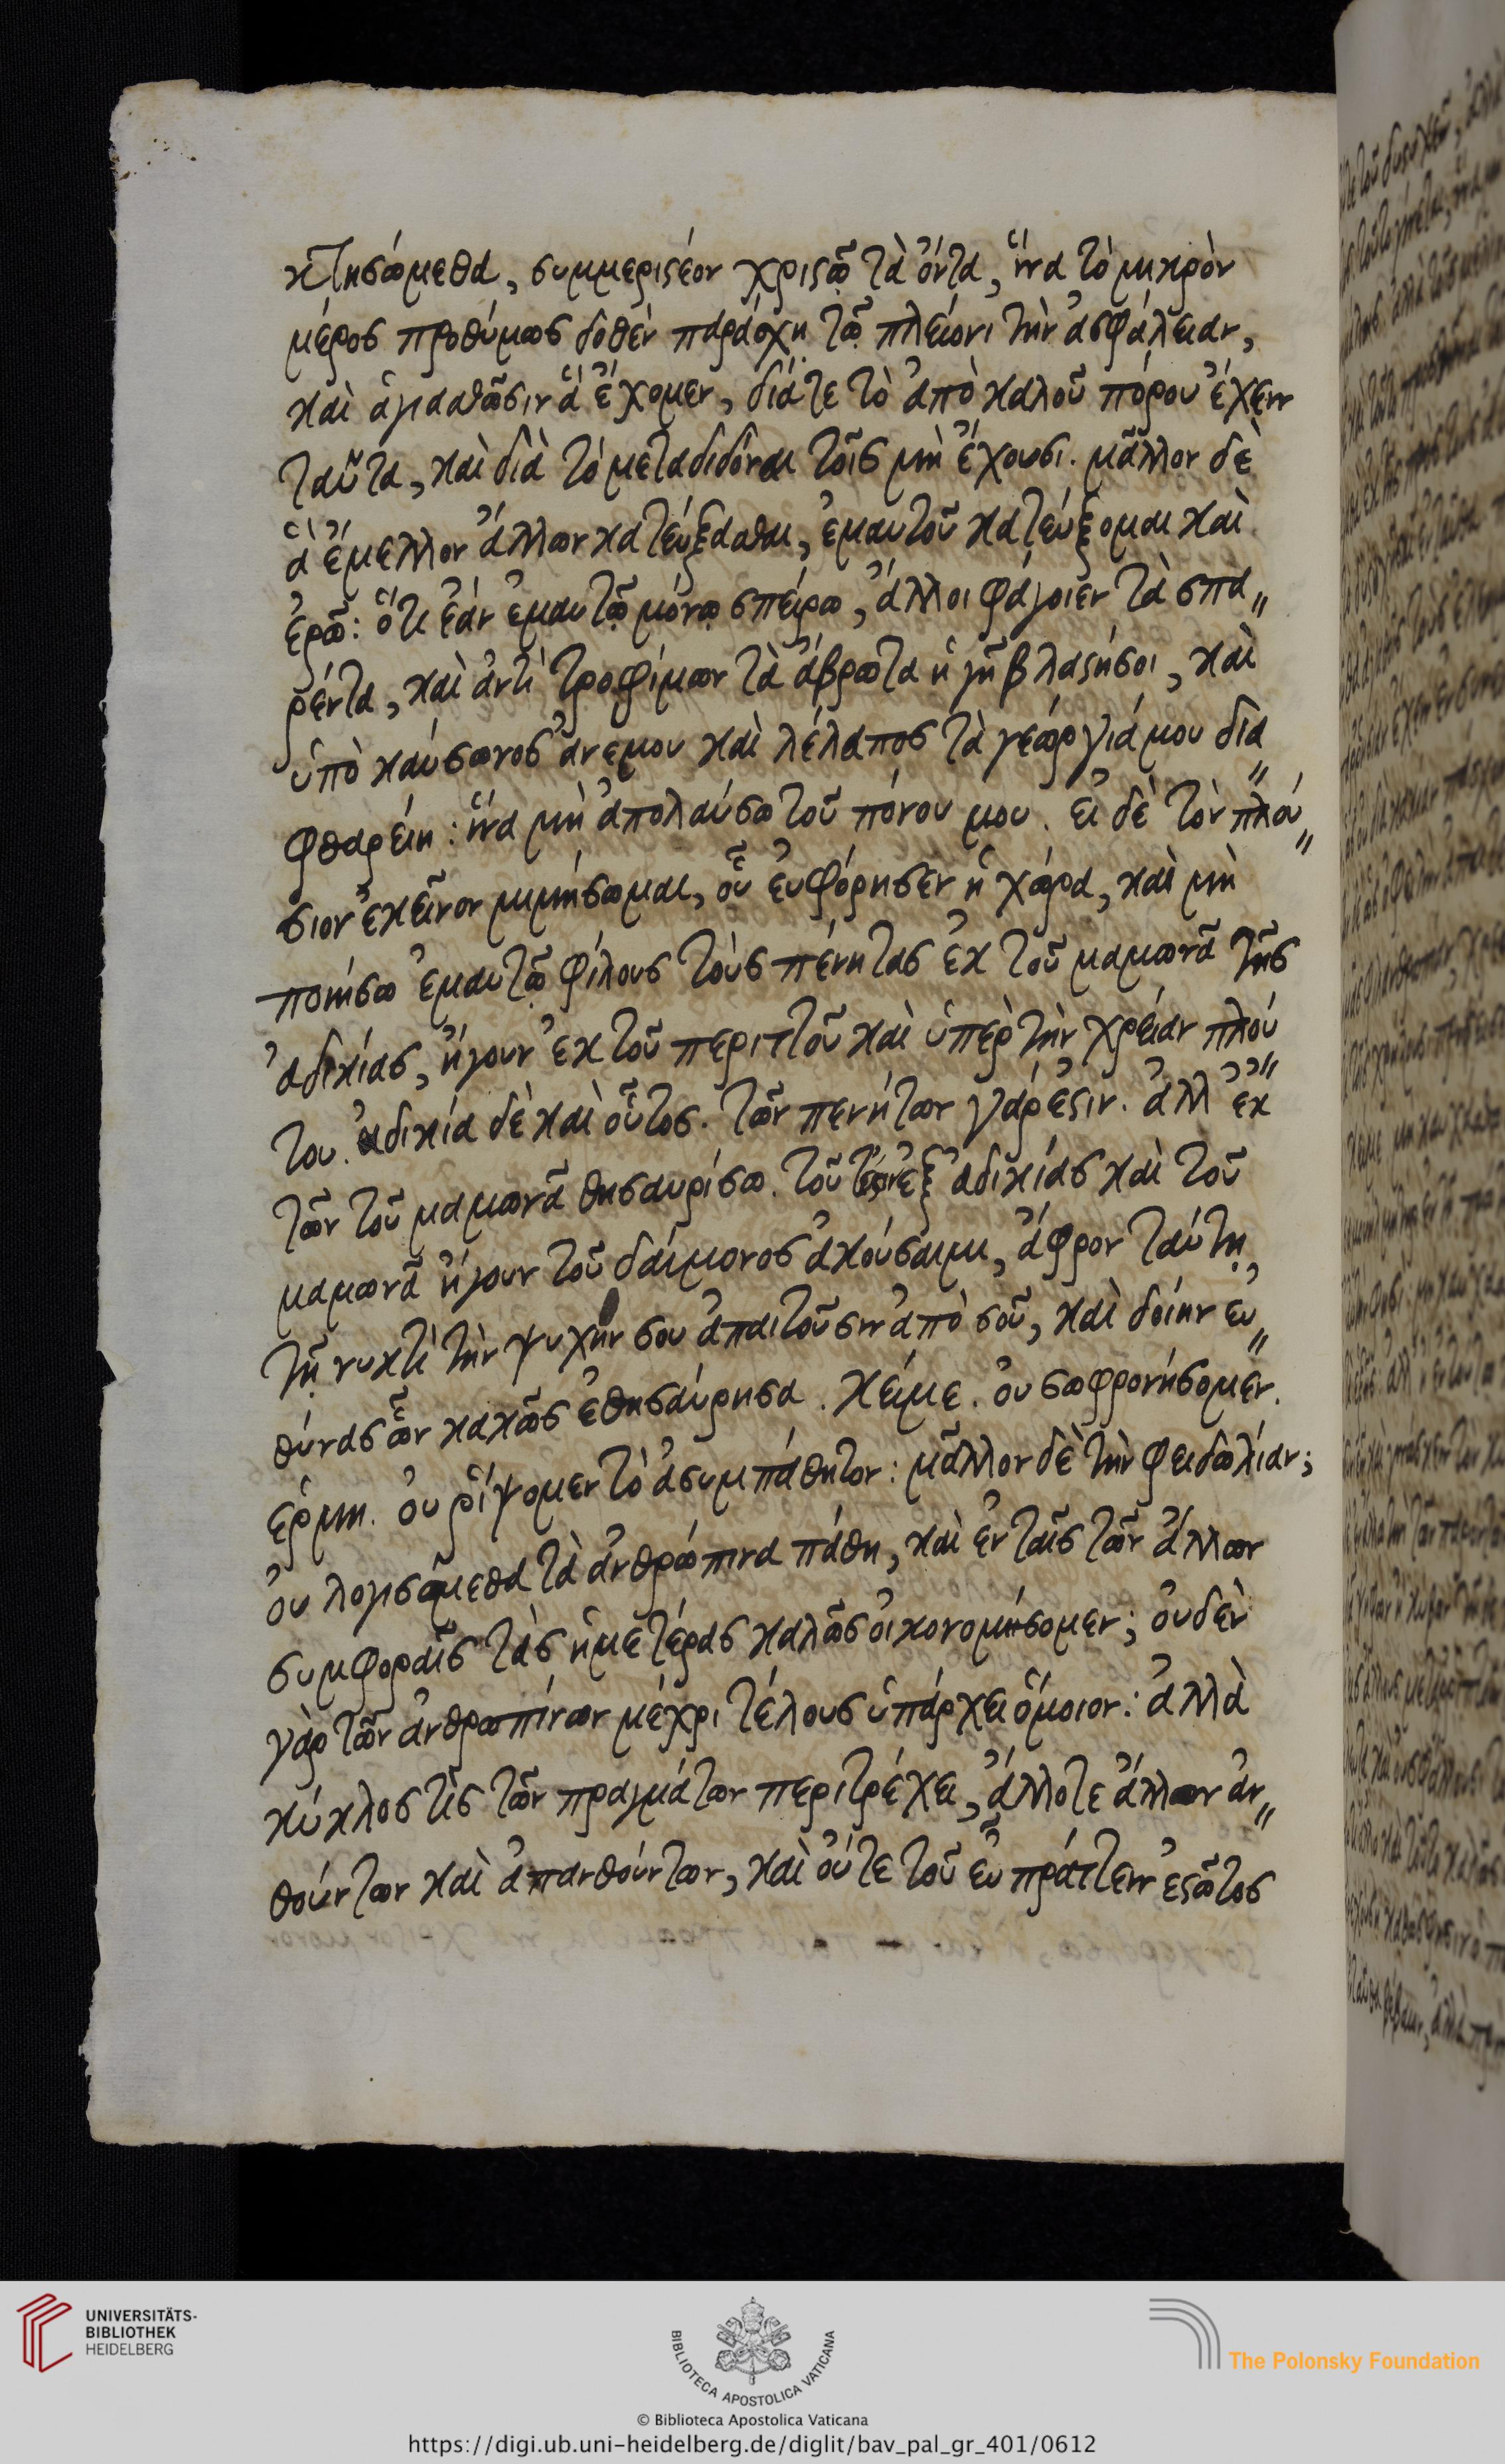 κτησώμεθα, συμμεριστέον χριστῷ τὰ ὄντα, ἵνα τὸ μικρὸν
μέρος προθύμως δοθὲν παράσχῃ τῷ πλείονι τὴν ἀσφάλειαν,
καὶ ἁγιασθῶσιν ἃ ἔχομεν, διά τε τὸ ἀπὸ καλοῦ πόρου ἔχειν
ταῦτα, καὶ διὰ τὸ μεταδιδόναι τοῖς μὴ ἔχουσι. μᾶλλον δὲ
ἃ ἔμελλον ἄλλων κατεύξασθαι, ἐμαυτοῦ κατεύξομαι καὶ
ἐρῶ: ὅτι ἐὰν ἐμαυτῷ μόνῳ σπείρω, ἄλλοι φάγοιεν τὰ σπα〃
ρέντα, καὶ ἀντὶ τροφίμων τὰ ἄβρωτα ἡ γῆ βλαστήσοι, καὶ
ὑπὸ καύσωνος ἀνεμου καὶ λέλαπος τὰ γεώργιά μου δια〃
φθαρείη: ἵνα μὴ ἀπολαύσω τοῦ πόνου μου. εἰ δὲ τὸν πλού〃
σιον ἐκεῖνον μιμήσωμαι, οὗ εὐφόρησεν ἡ χώρα, καὶ μὴ
ποιήσω ἐμαυτῷ φίλους τοὺς πένητας ἐκ τοῦ μαμωνᾶ τῆς
ἀδικίας, ἤγουν ἐκ τοῦ περιττοῦ καὶ ὑπὲρ τὴν χρείαν πλού〃
του. ἀδικία δὲ καὶ οὗτος. τῶν πενήτων γάρ ἐστιν. ἀλλ ἐκ
τῶν τοῦ μαμωνᾶ θησαυρίσω. τοῦτέστιν ἐξ ἀδικίας καὶ τοῦ
μαμωνᾶ ἤγουν τοῦ δαίμονος ἀκούσαιμι, ἄφρον ταύτῃ
τῇ νυκτὶ τὴν ψυχήν σου ἀπαιτοῦσιν ἀπὸ σοῦ, καὶ δοίην εὐ〃
θύνας ὧν κακῶς ἐθησαύρησα. κείμε. οὐ σωφρονήσομεν.
ἑρμη. οὐ ῥίψομεν τὸ ἀσυμπάθητον: μᾶλλον δὲ τὴν φειδωλίαν;
οὐ λογισώμεθα τὰ ἀνθρώπινα πάθη, καὶ ἐν ταῖς τῶν ἄλλων
συμφοραῖς τὰς ἡμετέρας καλῶς οἰκονομήσομεν; οὐδὲν
γὰρ τῶν ἀνθρωπίνων μέχρι τέλους ὑπάρχει ὅμοιον: ἀλλὰ
κύκλος τὶς τῶν πραγμάτων περιτρέχει, ἄλλοτε ἄλλων ἀν〃
θούντων καὶ ἀπανθούντων, καὶ οὔτε τοῦ εὖ πράττειν ἐστῶτος
UNIVERSITÄTS-
BIBLIOTHEK
HEIDELBERG
BIBLIOTECA APOSTOLICA VATICANA
The Polonsky Foundation
© Biblioteca Apostolica Vaticana
https://digi.ub.uni-heidelberg.de/diglit/bav_pal_gr_401/0612